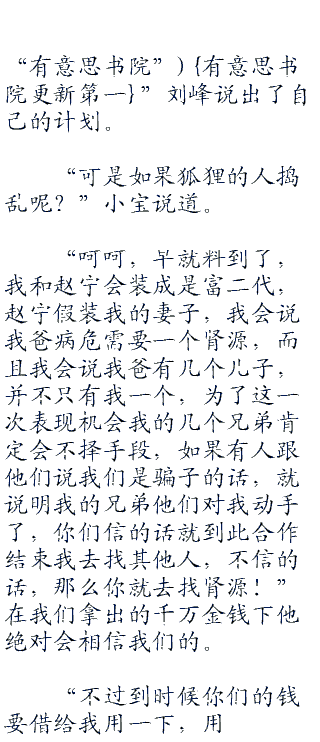 “有意思书院”) {有意思书
院更新第一}” 刘峰说出了自
己的计划。
“可是如果狐狸的人捣
乱呢？” 小宝说道。
“呵呵，早就料到了，
我和赵宁会装成是富二代，
赵宁假装我的妻子，我会说
我爸病危需要一个肾源，而
且我会说我爸有几个儿子，
并不只有我一个，为了这一
次表现机会我的几个兄弟肯
定会不择手段，如果有人跟
他们说我们是骗子的话，就
说明我的兄弟他们对我动手
了，你们信的话就到此合作
结束我去找其他人，不信的
话，那么你就去找肾源！”
在我们拿出的千万金钱下他
绝对会相信我们的。
“不过到时候你们的钱
要借给我用一下，用